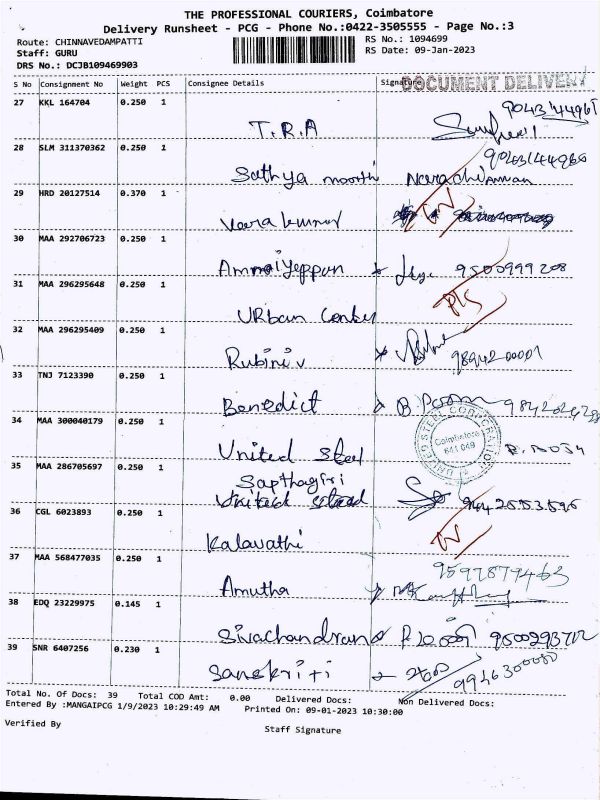 THE PROFESSIONAL COURIERS, Coimbatore
Delivery Runsheet - PCG - Phone No.:0422-3505555 - Page No.:3
Route: CHINNAVEDAMPATTI
RS No.: 1094699
Staff: GURU
RS Date: 09-Jan-2023
DRS No.: DCJB109469903
DOCUMENT DELIVERY
S No Consignment No Weight PCS Consignee Details Signature
27 KKL 164704 0.250 1
T.R.A
28 SLM 311370362 0.250 1
Sathya moorthi
29 HRD 20127514 0.370 1
Veerakumar
30 MAA 292706723 0.250 1
Ammaiyappan 9500999208
31 MAA 296295648 0.250 1
Urban
32 MAA 296295409 0.250 1
Rubini v
33 TNJ 7123390 0.250 1
Benedict
34 MAA 300040179 0.250 1
United Steel
UNITED STEEL CORPORATION
Coimbatore
641 049
35 MAA 286705697 0.250 1
Sapthagiri
36 CGL 6023893 0.250 1
Kalavathi
37 MAA 568477035 0.250 1
9597879463
Amutha
38 EDQ 23229975 0.145 1
Sivachandran
39 SNR 6407256 0.230 1
Sanskriti
Total No. Of Docs: 39 Total COD Amt: 0.00 Delivered Docs: Non Delivered Docs:
Entered By :MANGAIPCG 1/9/2023 10:29:49 AM Printed On: 09-01-2023 10:30:00
Verified By
Staff Signature